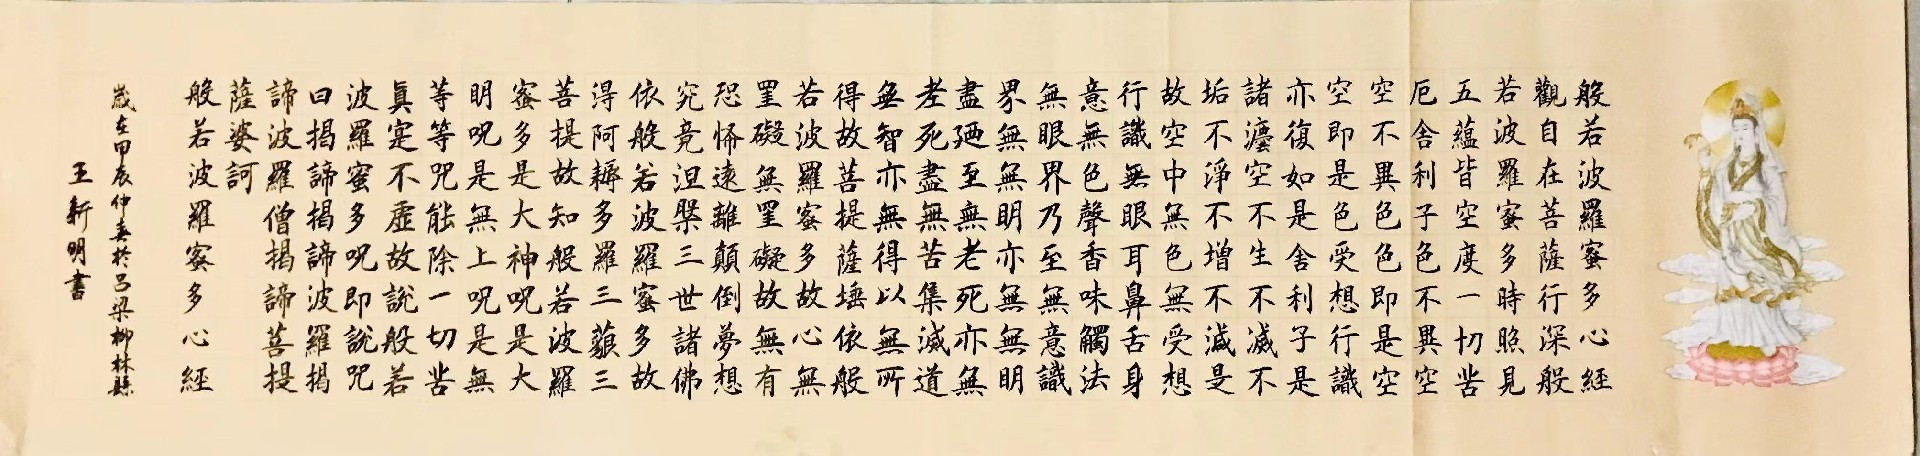 般若波羅蜜多心經
觀自在菩薩行深般
若波羅蜜多時照見
五蘊皆空度一切苦
厄舍利子色不異空
空不異色色即是空
空即是色受想行識
亦復如是舍利子是
諸灋空不生不滅不
垢不淨不增不減是
故空中無色無受想
行識無眼耳鼻舌身
意無色聲香味觸法
無眼界乃至無意識
界無無明亦無無明
盡廼至無老死亦無
老死盡無苦集滅道
無智亦無得以無所
得故菩提薩埵依般
若波羅蜜多故心無
罣礙無罣礙故無有
恐怖遠離顛倒夢想
究竟涅槃三世諸佛
依般若波羅蜜多故
得阿耨多羅三藐三
菩提故知般若波羅
蜜多是大神呪是大
明呪是無上呪是無
等等咒能除一切苦
眞寔不虛故說般若
波羅蜜多呪即說咒
曰揭諦揭諦波羅揭
諦波羅僧揭諦菩提
薩婆訶
般若波羅蜜多心經
歲在甲辰仲春於呂梁柳林縣
王新明書